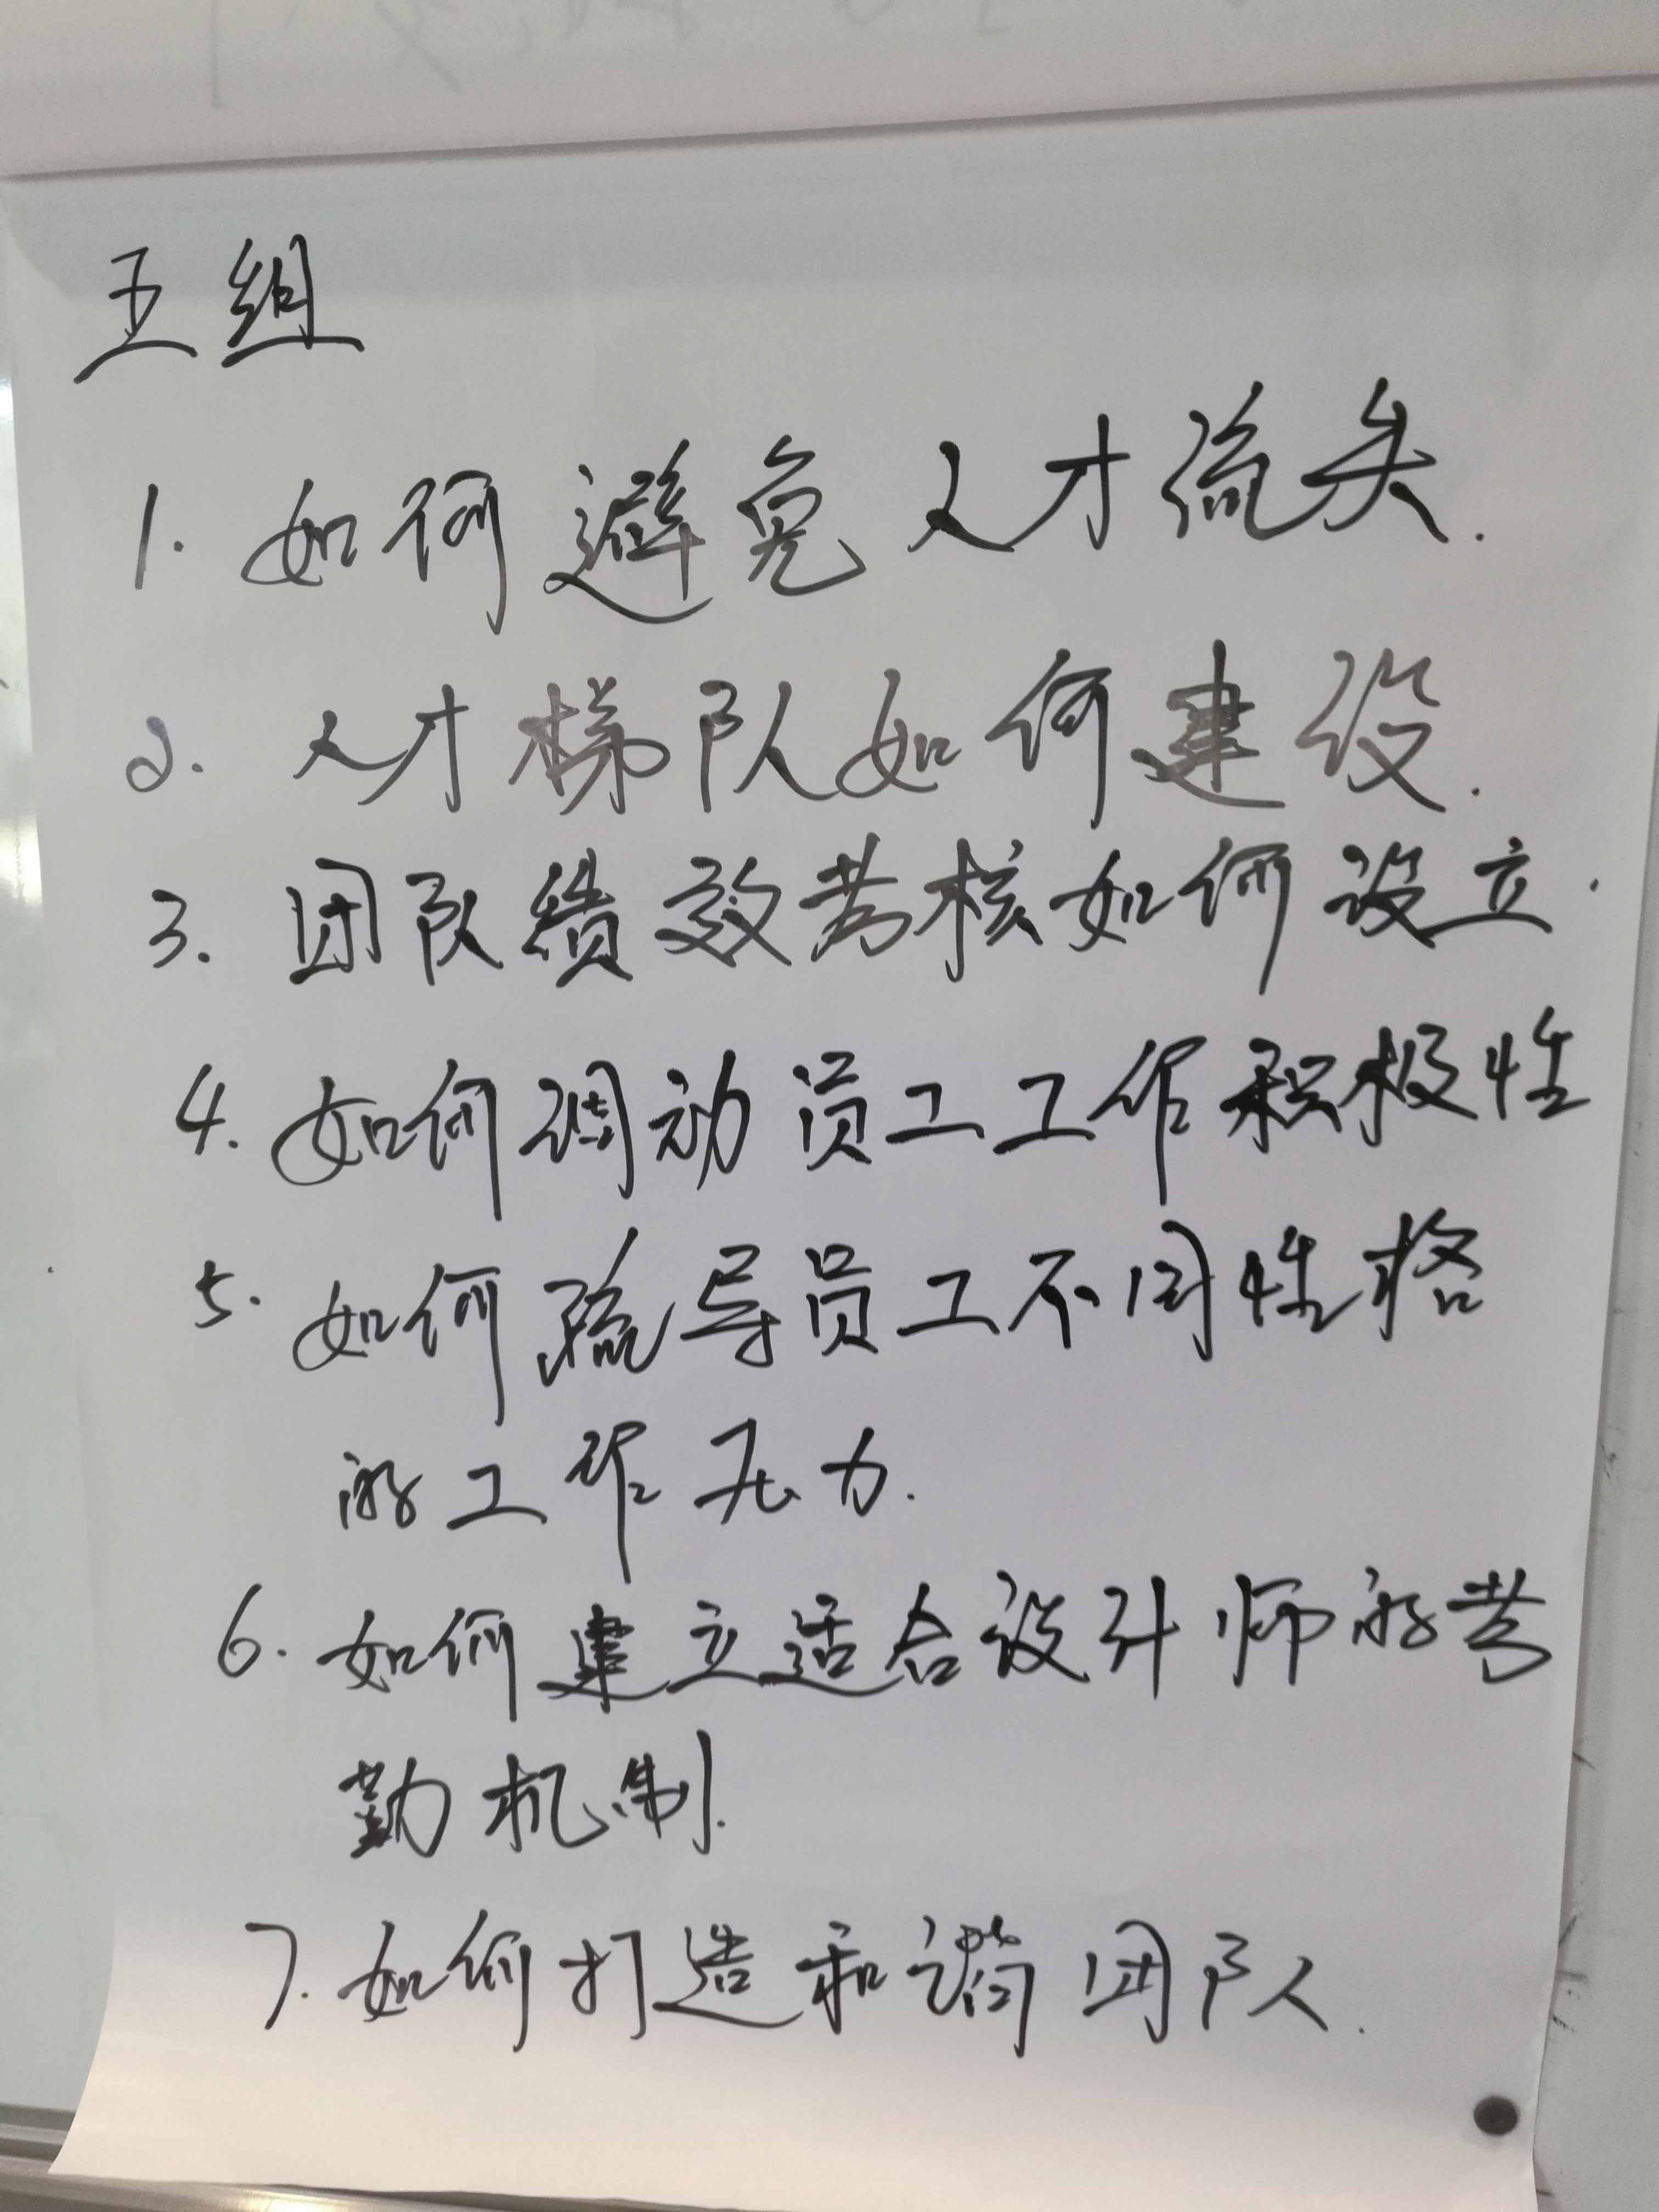 五组
1. 如何避免人才流失.
2. 人才梯队如何建设.
3. 团队绩效考核如何设立.
4. 如何调动员工工作积极性
5. 如何疏导员工不同性格
的工作无力.
6. 如何建立适合设计师的考
勤机制.
7. 如何打造和谐团队.